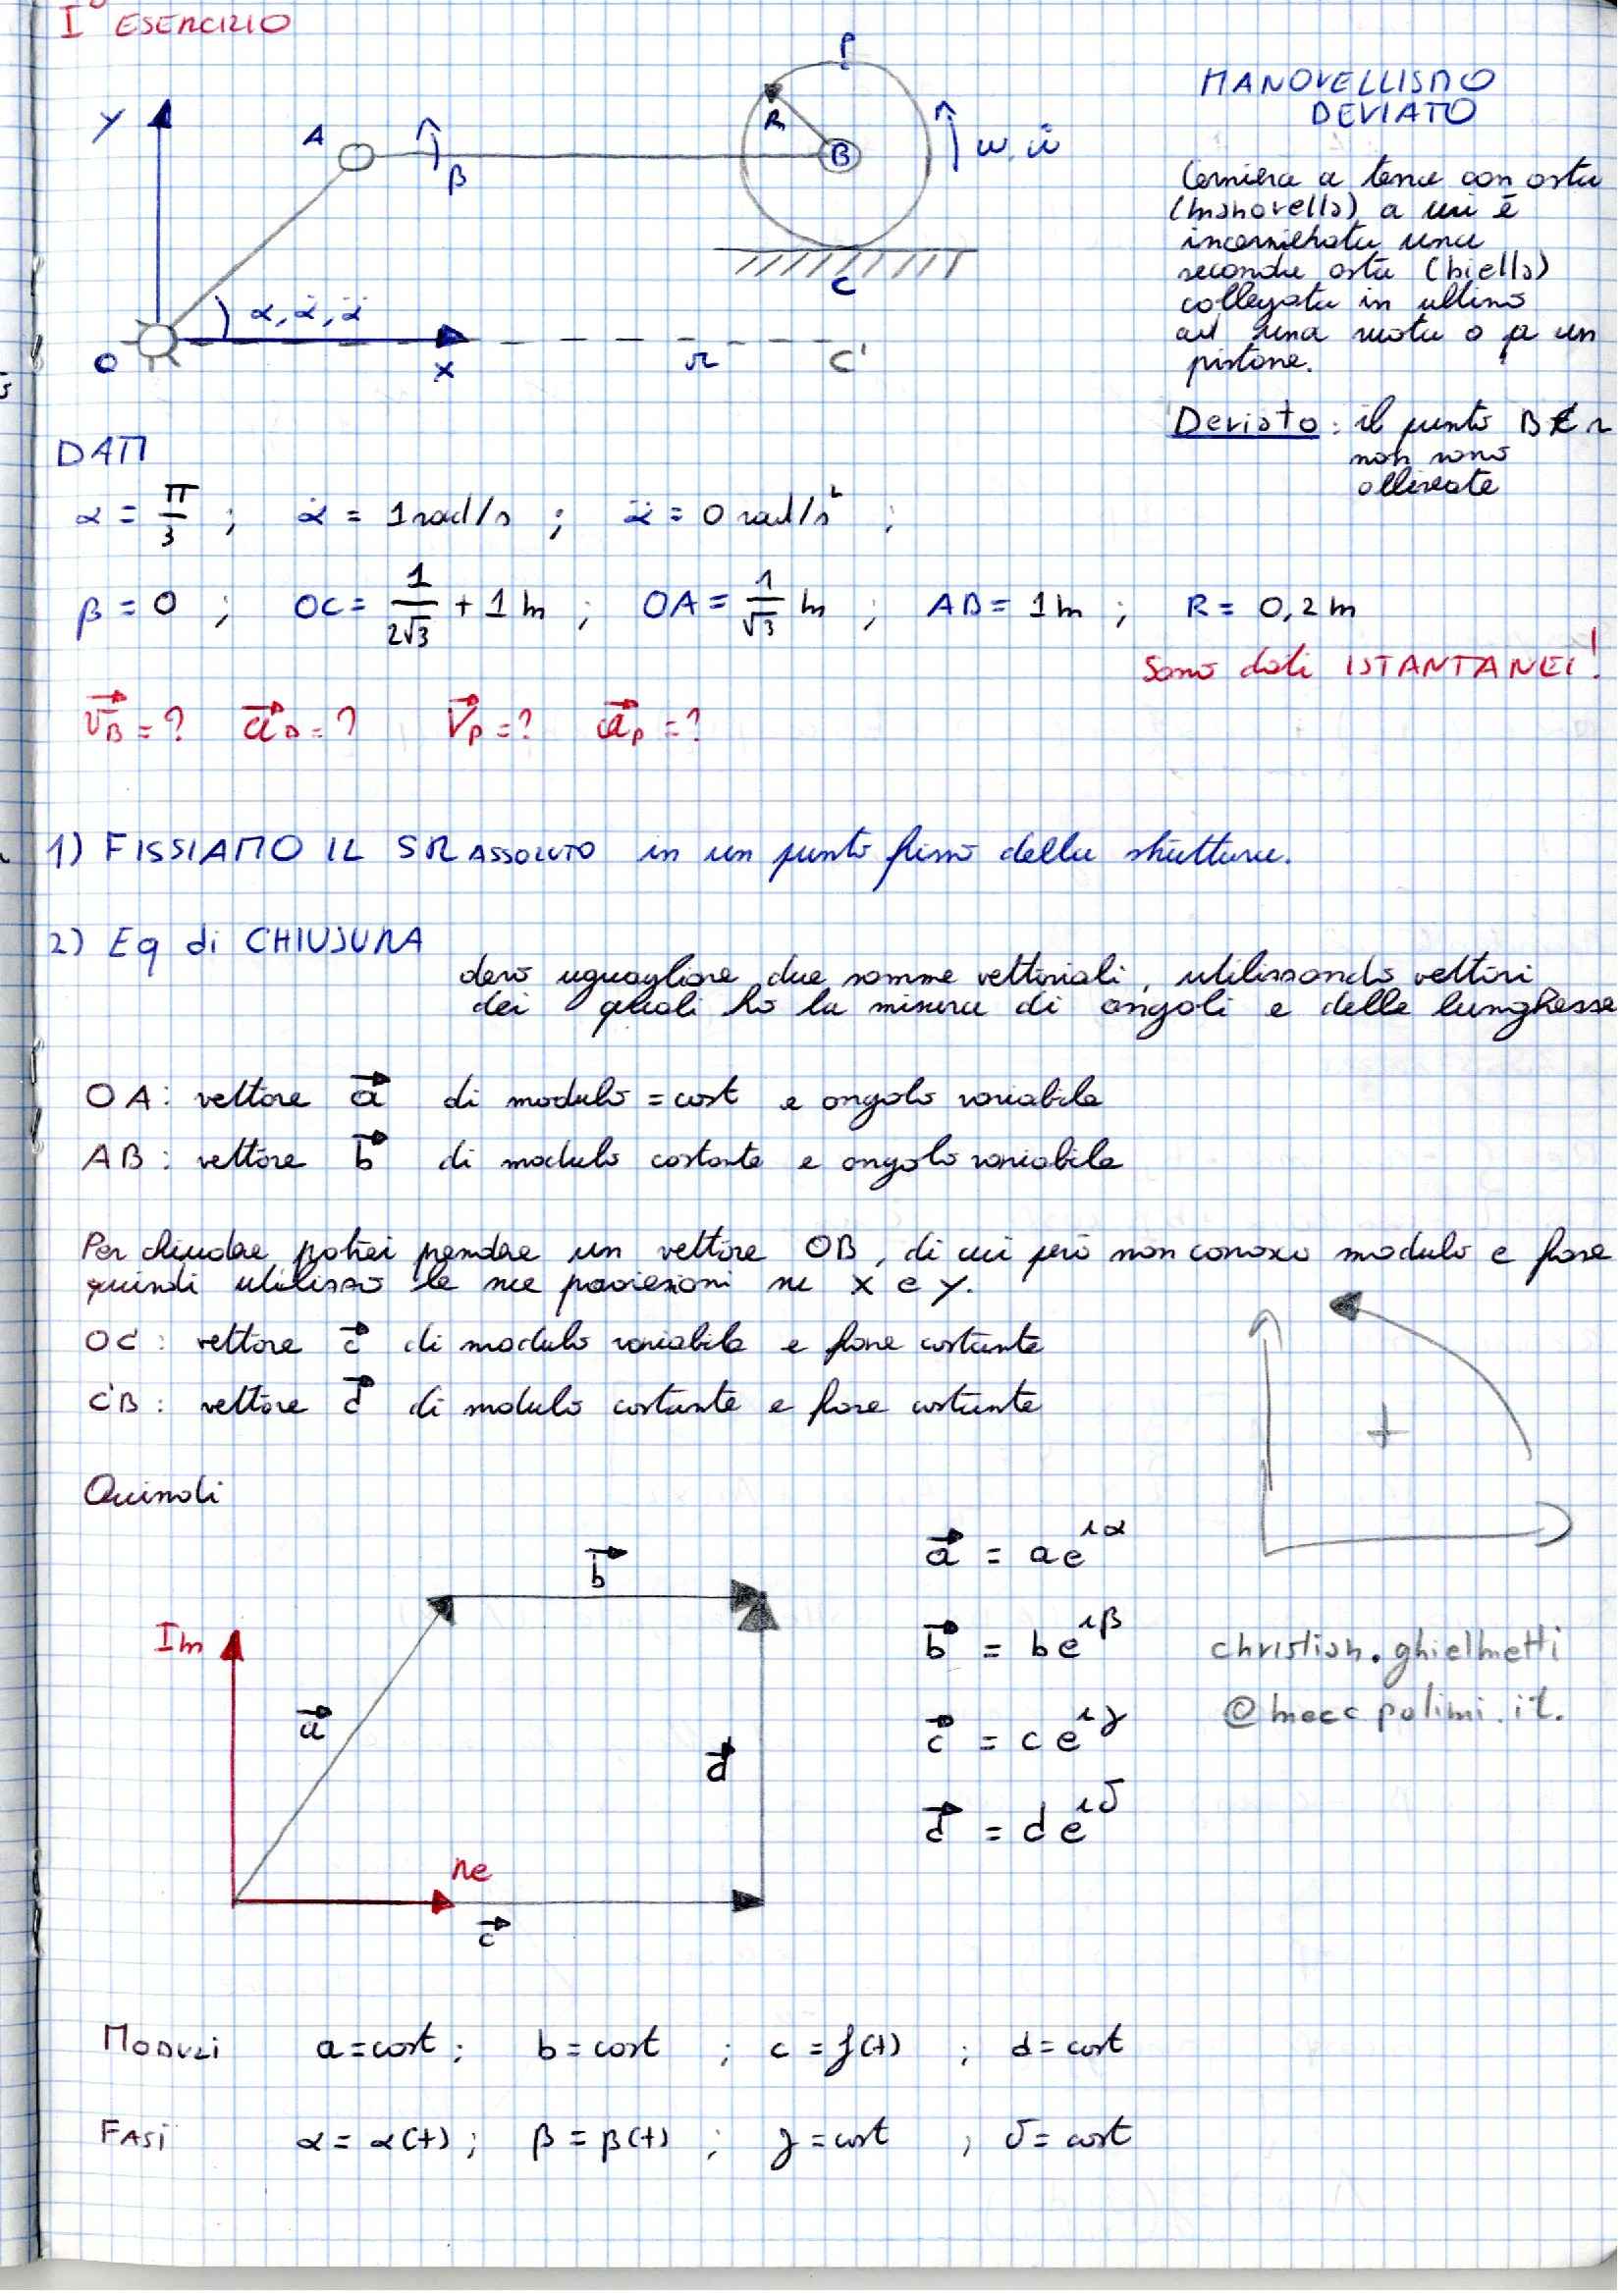 I° ESERCIZIO
MANOVELLISMO
DEVIATO
Y
A
β
R
B
P
ω, ω̇
C
O
α, α̇, α̈
X
r
C'
Cerniera a terra con asta
(manovella) a cui è
incernierata una
seconda asta (biella)
collegata in ultimo
ad una ruota o a un
pistone.
Deviato: il punto B e r
non sono
allineate
DATI
α = π/3 ; α̇ = 1 rad/s ; α̈ = 0 rad/s² ;
β = 0 ; OC = 1/2√3 + 1 m ; OA = 1/√3 m ; AB = 1 m ; R = 0,2 m
Sono dati ISTANTANEI!
v⃗B = ? a⃗B = ? v⃗P = ? a⃗P = ?
1) FISSIAMO IL SR ASSOLUTO in un punto fisso della struttura.
2) Eq di CHIUSURA
devo uguagliare due somme vettoriali, utilizzando vettori
dei quali ho la misura di angoli e delle lunghezze
OA: vettore a⃗ di modulo = cost e angolo variabile
AB: vettore b⃗ di modulo costante e angolo variabile
Per chiudere potrei prendere un vettore OB, di cui però non conosco modulo e fase
quindi utilizzo le sue proiezioni su X e Y.
OC': vettore c⃗ di modulo variabile e fase costante
C'B: vettore d⃗ di modulo costante e fase costante
+
Quindi
b⃗
Im
a⃗
d⃗
Re
c⃗
a⃗ = a e^iα
b⃗ = b e^iβ
c⃗ = c e^iγ
d⃗ = d e^iδ
christian.ghielmetti
@mecc polimi.it.
MODULI a = cost ; b = cost ; c = f(t) ; d = cost
FASI α = α(t) ; β = β(t) ; γ = cost ; δ = cost